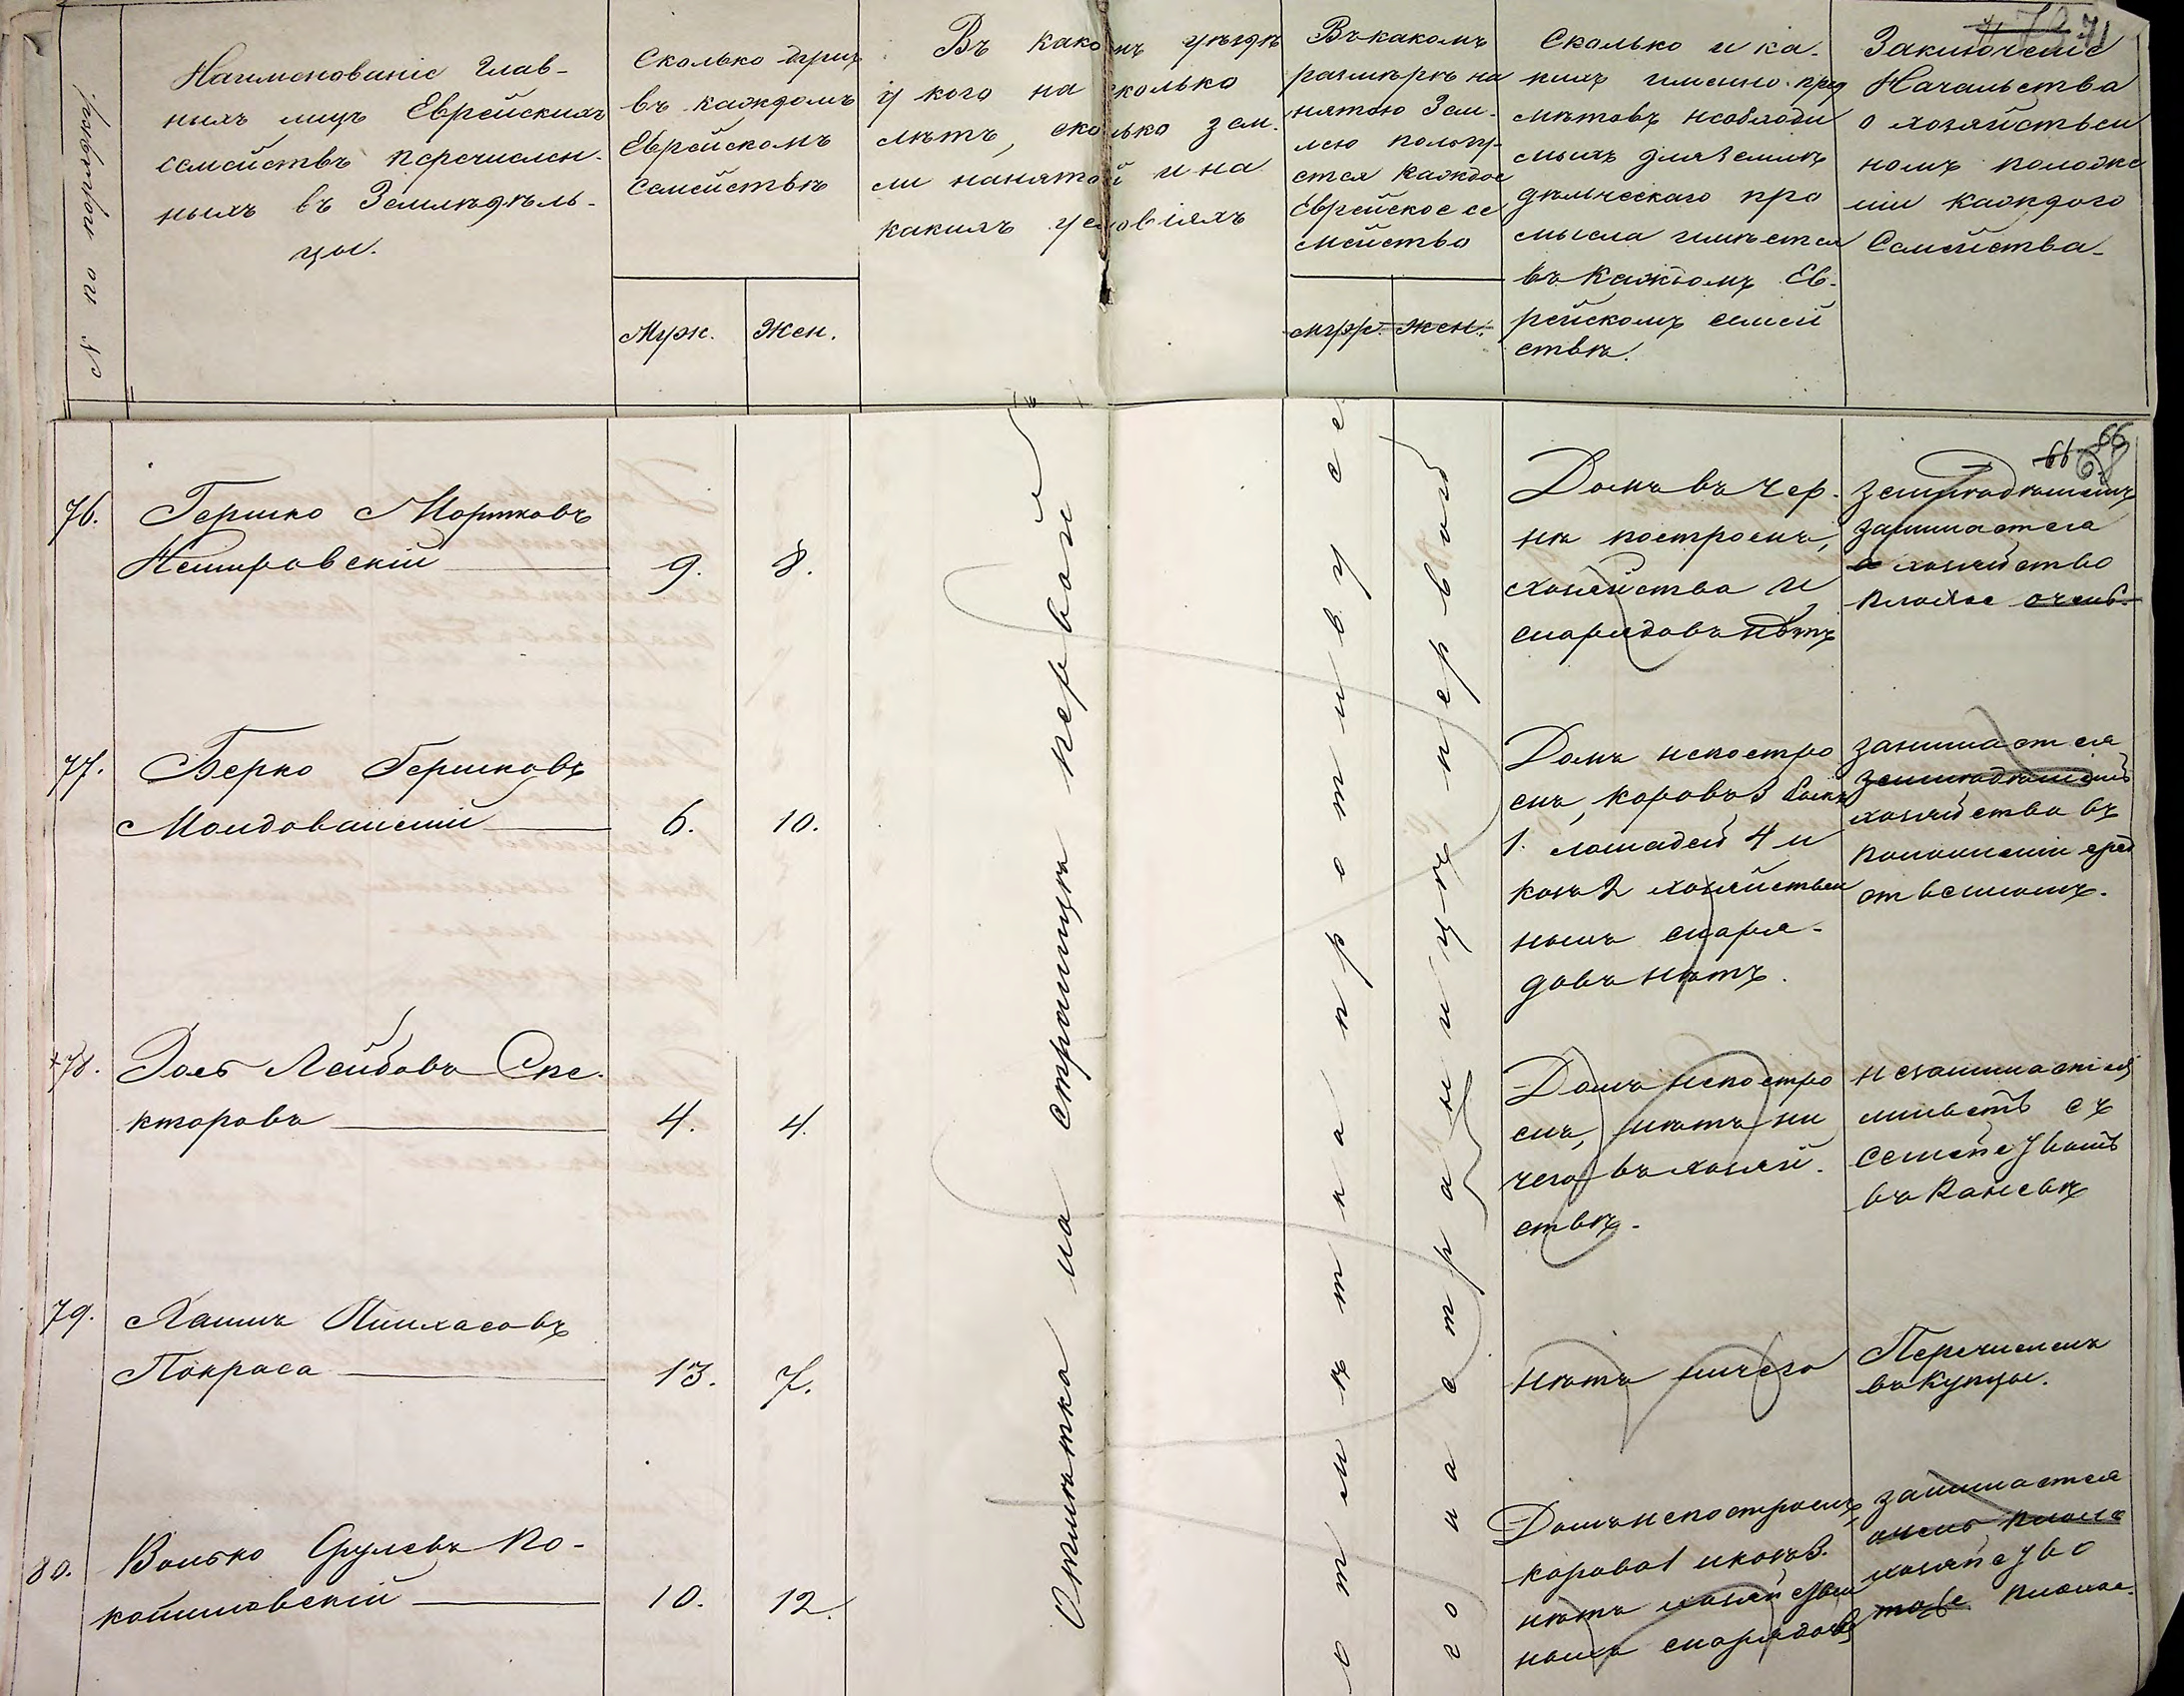 № по порядку.
Наименованіе глав-
ныхъ лицъ Еврейскихъ
семействъ перечислен-
ныхъ въ Земледѣль-
цы.
Сколько душъ
въ каждомъ
Еврейскомъ
Семействѣ
Муж.
Жен.
Въ какомъ уѣздѣ
у кого на сколько
лѣтъ, сколько зем.
ли нанятой и на
какихъ условіяхъ
Въ какомъ
размѣрѣ на
нятою Зем-
лею пользу-
ется каждое
Еврейское се
мейство
муж. жен.
Сколько и ка-
кихъ именно пред
мѣтовъ необходи
мыхъ для земле
дѣльческаго про
мысла имѣется
въ каждомъ Ев-
рейскомъ семей
ствѣ.
71
Заключеніе
Начальства
о хозяйствен
номъ положе
ніи каждого
Семейства.
66
66
68
76. Гершко Мортковъ
Немировскій 9. 8.
Домъ въ Чер-
нѣ построенъ,
хозяйства и
снарядовъ нѣтъ
земледѣліемъ
занимается
а хозяйство
плохое очень.
77. Берко Гершковъ
Молдованскій 6. 10.
Домъ непостро
енъ, коровъ 3 быкъ
1. лошадей 4 и
козъ 2 хозяйствен
ныхъ снаря-
довъ нѣтъ.
занимается
земледѣліемъ
хозяйство въ
положеніи сред
ственномъ.
+78. Эль Лейбовъ Спе-
кторовъ 4. 4.
Домъ непостро
енъ, нѣтъ ни
чего въ хозяй-
ствѣ.
незанимается
съ
въ Каневѣ
79. Хаимъ Пинхасовъ
Покраса 13. 7.
нѣтъ ничего
Перечисленъ
въ купцы.
80. Волько Срулевъ Ко-
палиновскій 10. 12.
Домъ непостроенъ,
корова 1 и козъ 3.
нѣтъ хозяйствен
ныхъ снарядовъ
занимается
очень плохо
хозяйство
тоже плохое.
Отмѣтка на страницѣ первой
отмѣтка противу се
го на страницѣ первой